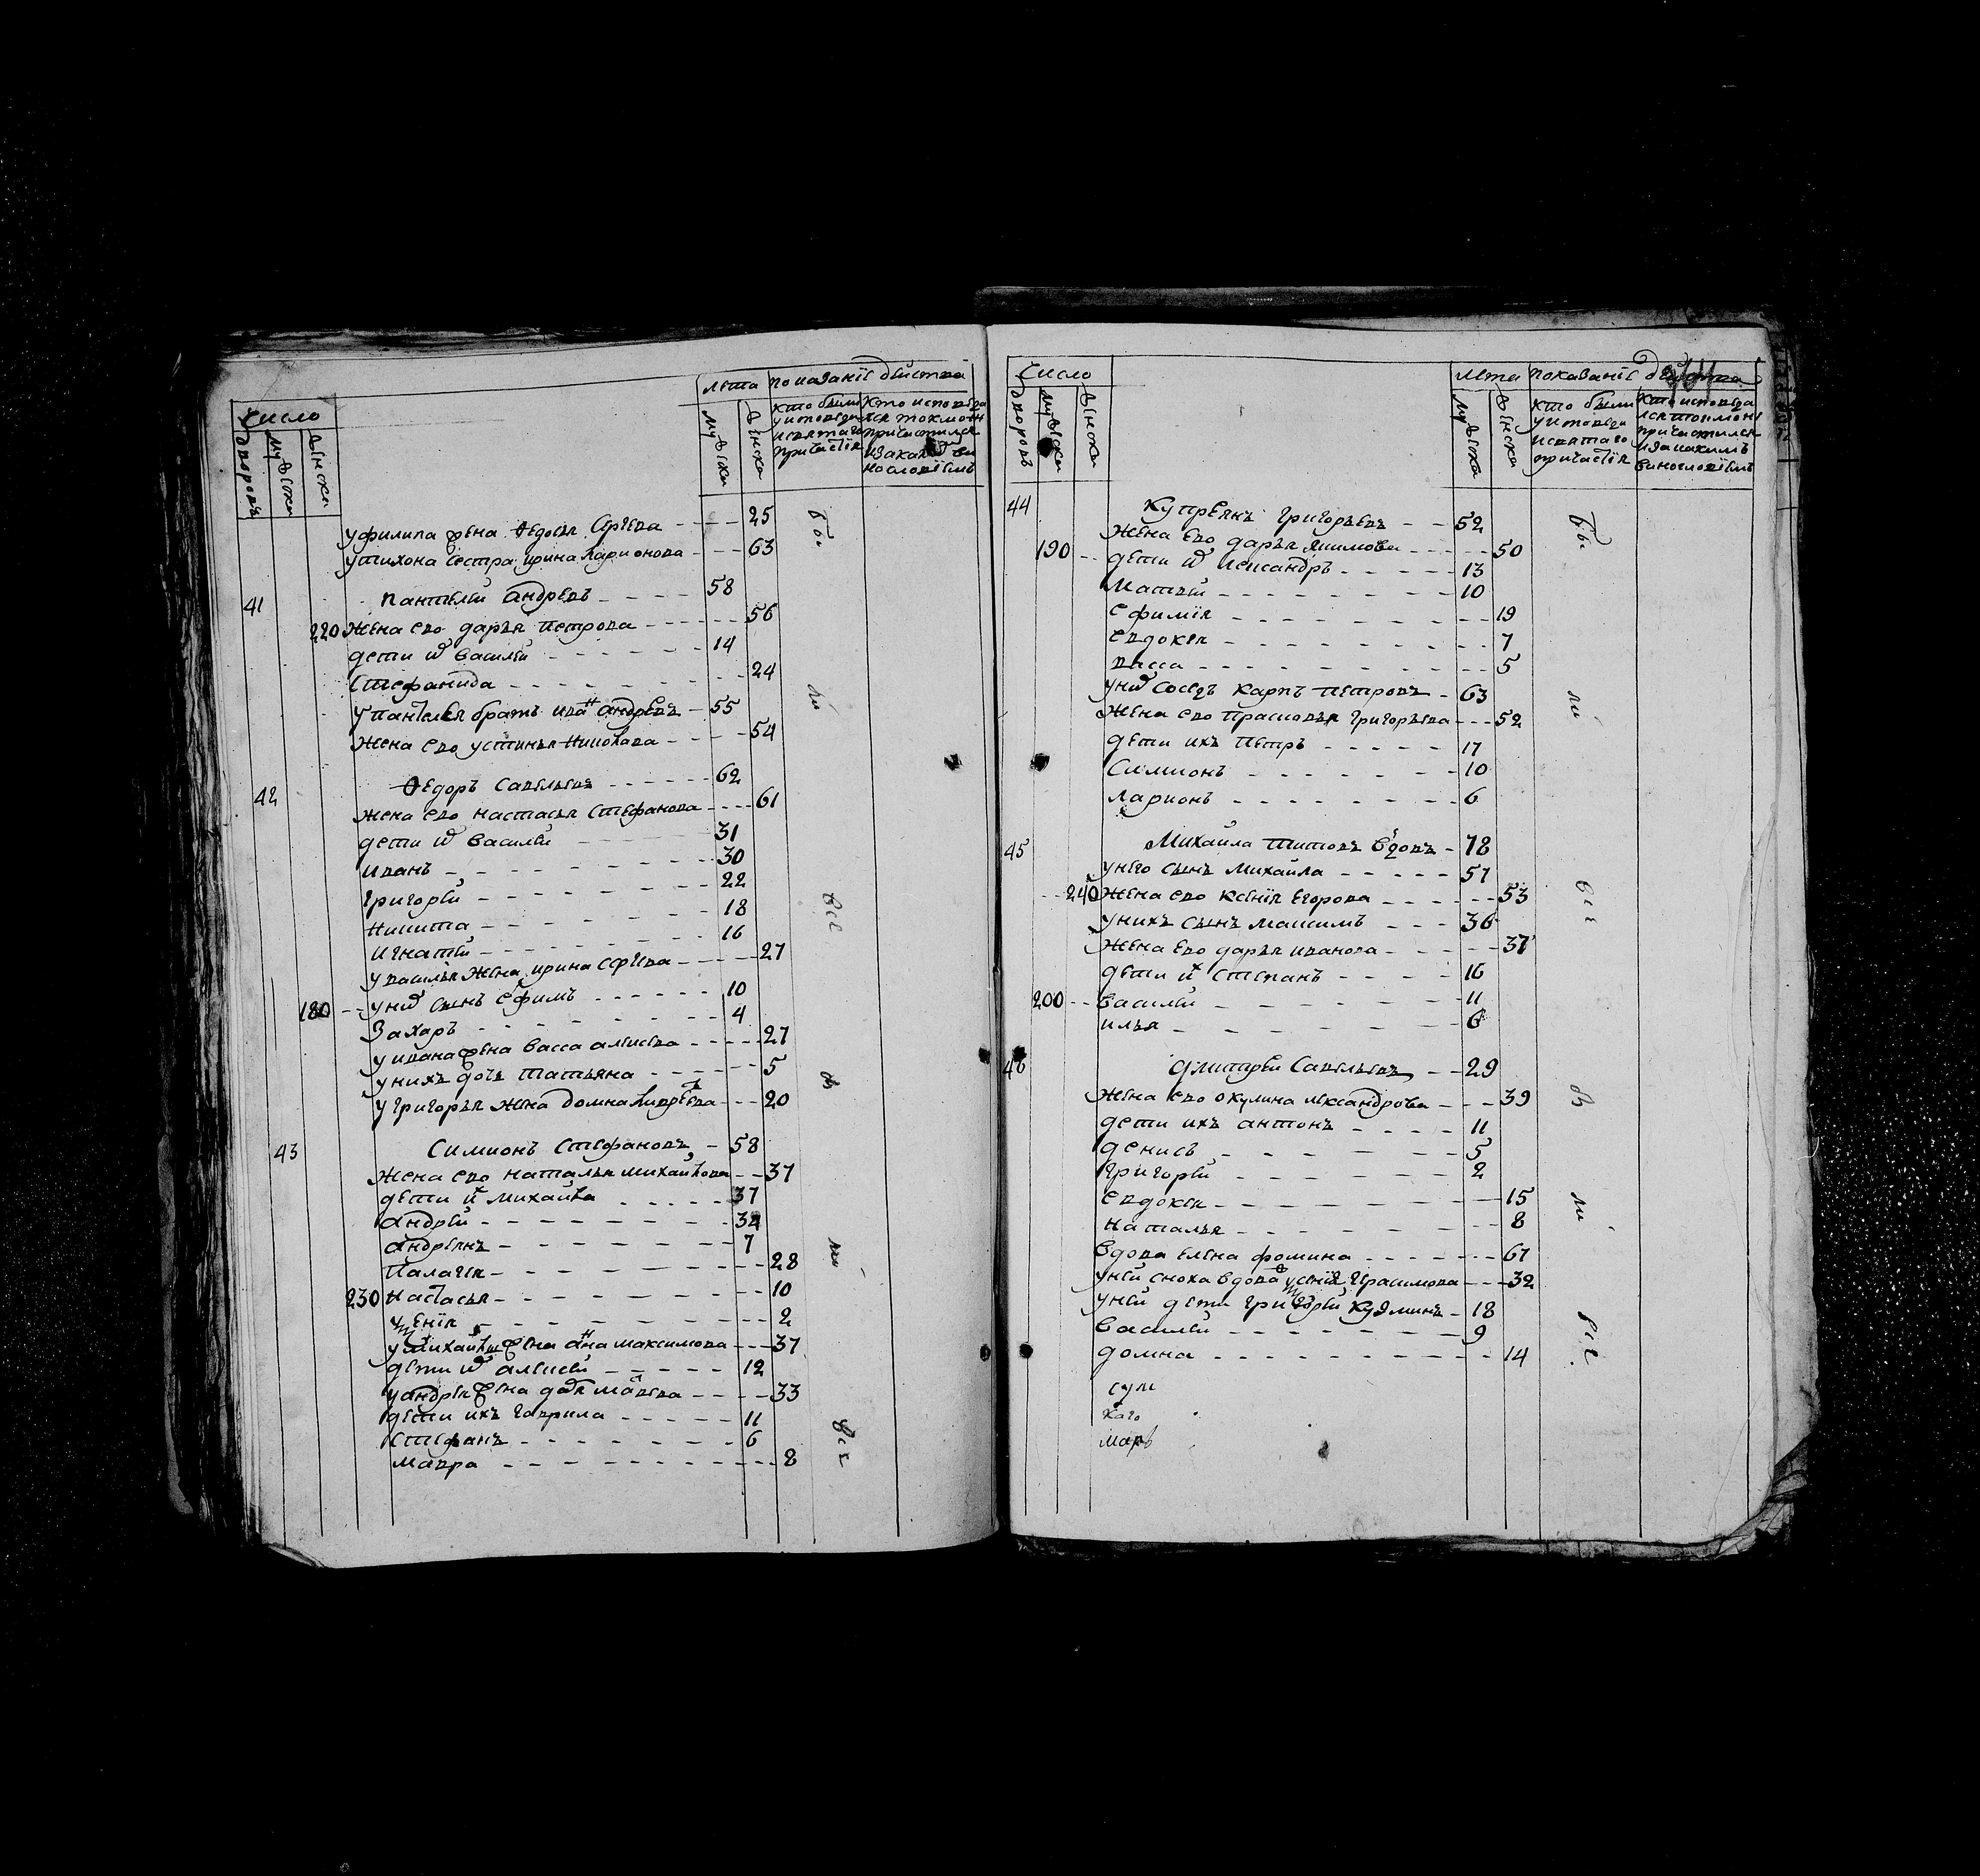 Число
лѣта показанїе дѣиства
дворовъ мужеска женска
мужеска женска кто были у исповеди и святаго причастїя
кто исповеда лся токмо
не причастился
и за каким ви
нословїемъ
у филипа жена Ѳедосья Сергѣева - - - 25
у тихона сестра ирина Ларионова - - - 63
41 пантелѣй андрѣевъ - - - 58
220 жена ево дарья петрова - - - 56
дети иⷯ василѣй - - - 14
стефанида - - - 24
у пантелѣя братъ иваⁿ андрѣевъ - 55
жена ево устинья николаева - - - 54
42 Ѳедоръ савельевъ - - - 62
жена ево настасья стефанова - - - 61
дети иⷯ василѣй 31
иванъ - - - 30
григорѣй - - - 22
никита - - - 18
игнатѣй - - - 16
у василья жена ирина сергѣева - - - 27
180 - - у ниⷯ сынъ ефимъ - - - 10
захаръ - - - 4
у ивана жена васса алексѣева - - - 27
у нихъ дочь татьяна - - - 5
у григорья жена домна андрѣева - - - 20
43 симионъ стефановъ - 58
жена ево наталья михайлова - - 37
дети иⷯ михайла - - - 37
андрѣй - - - 34
андрѣянъ - - - 7
палагея - - - 28
230 настасья - - - 10
ксенїя - - - 2
у михайлы жена анна максимова - - - 37
дѣти иⷯ алексѣй - - - 12
у андрѣя жена дарья матвѣева - - - 33
дѣти ихъ гаврила - - - 11
стефанъ - - - 6
мавра - - - 8
бы
ли
всѣ
бы
ли
всѣ
Число
лѣта показанїе дѣйства
дворовъ мужеска женска
мужеска женска кто были у исповеди и святаго причастїя
кто исповеда
лся токмо не
причастился
и за какимъ
винословїемъ
44 куприянъ григорьевъ - - 52
жена ево дарья якимова - - - 50
190 - - дети иⷯ александръ - - - 13
матвѣй - - - 10
ефимїя - - - 19
евдокея - - - 7
васса - - - 5
у ниⷯ соседъ карпъ петровъ - 63
жена ево прасковья григорьева - - - 52
дети ихъ петръ - - - 17
симионъ - - - 10
ларионъ - - - 6
45 михайла титовъ вдовъ - 78
у него сынъ михайла - - - 57
240 жена ево ксенїя егорова - - - 53
у нихъ сынъ максимъ - - - 36
жена ево дарья иванова - - - 37
дети иⷯ степанъ - - - 16
200 - - василѣй - - - 11
илья - - - 6
46 дмитрѣй савельевъ - - 29
жена ево окулина александрова - - - 39
дети ихъ антонъ - - - 11
денисъ - - - 5
григорѣй - - - 2
евдокея - - - 15
наталья - - - 8
вдова елена фомина - - - 67
у ней сноха вдова ксенїя герасимова - - - 32
у ней дети григорѣй кузминъ - 18
василѣй - - - 9
домна - - - 14
бы
ли
всѣ
бы
ли
всѣ